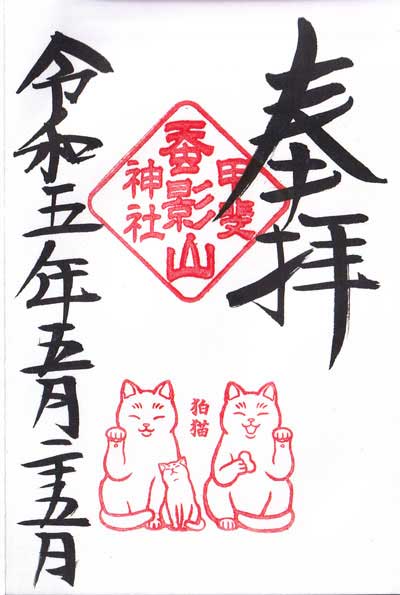 奉拝
甲斐
蚕影山
神社
狛猫
令和五年五月二十五日